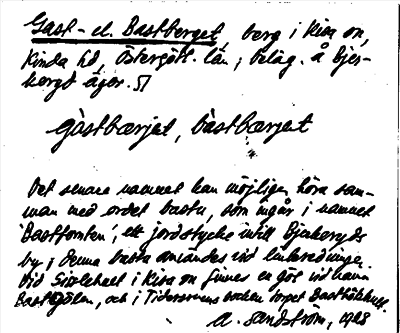 Gast- el. Bastberget, berg i Kisa sn,
Kinda hd, Östergötl. län; beläg. å Bjer-
keryd ägor. 5/
gàstbærjet, bàstbærjet
Det senare namnet kan möjligen höra sam-
man med ordet bastu, som ingår i namnet
'Bastutomten', ett jordstycke intill Bjerkeryds
by; denna bastu användes vid linberedningen.
Vid Sisslehult i Kisa sn finnes en göl vid namn
Bastgölen, och i Tidersrums socken torpet Basthölshult.
A. Sandström, 1928